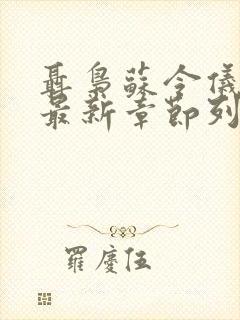 聶梟蘇令儀
最新章節列
羅慶伍